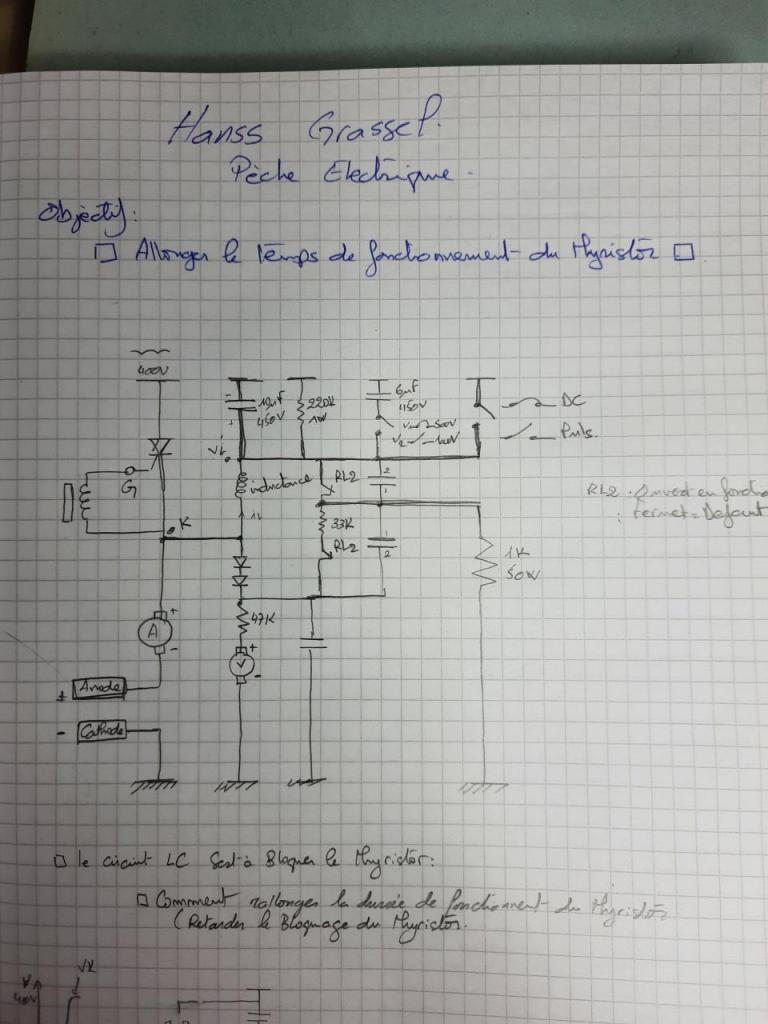 Hanss Grassel.
Pèche Electrique.
Objectif:
□ Allonger le temps de fonctionnement du thyristor □
400V
10µF
450V
220K
1W
6µF
450V
DC
Puls.
V1
inductance
RL2
2
1
RL2 . Ouvert en fonctio
: Fermet = Défaut
G
K
iL
33K
RL2
1
2
1K
50W
47K
A
+
-
V
+
-
+ Anode
- Cathode
□ le circuit LC Sert à Bloquer le thyristor:
□ Comment rallonger la durée de fonctionnent du thyristor
(Retarder le Bloquage du thyristor.
V
VK